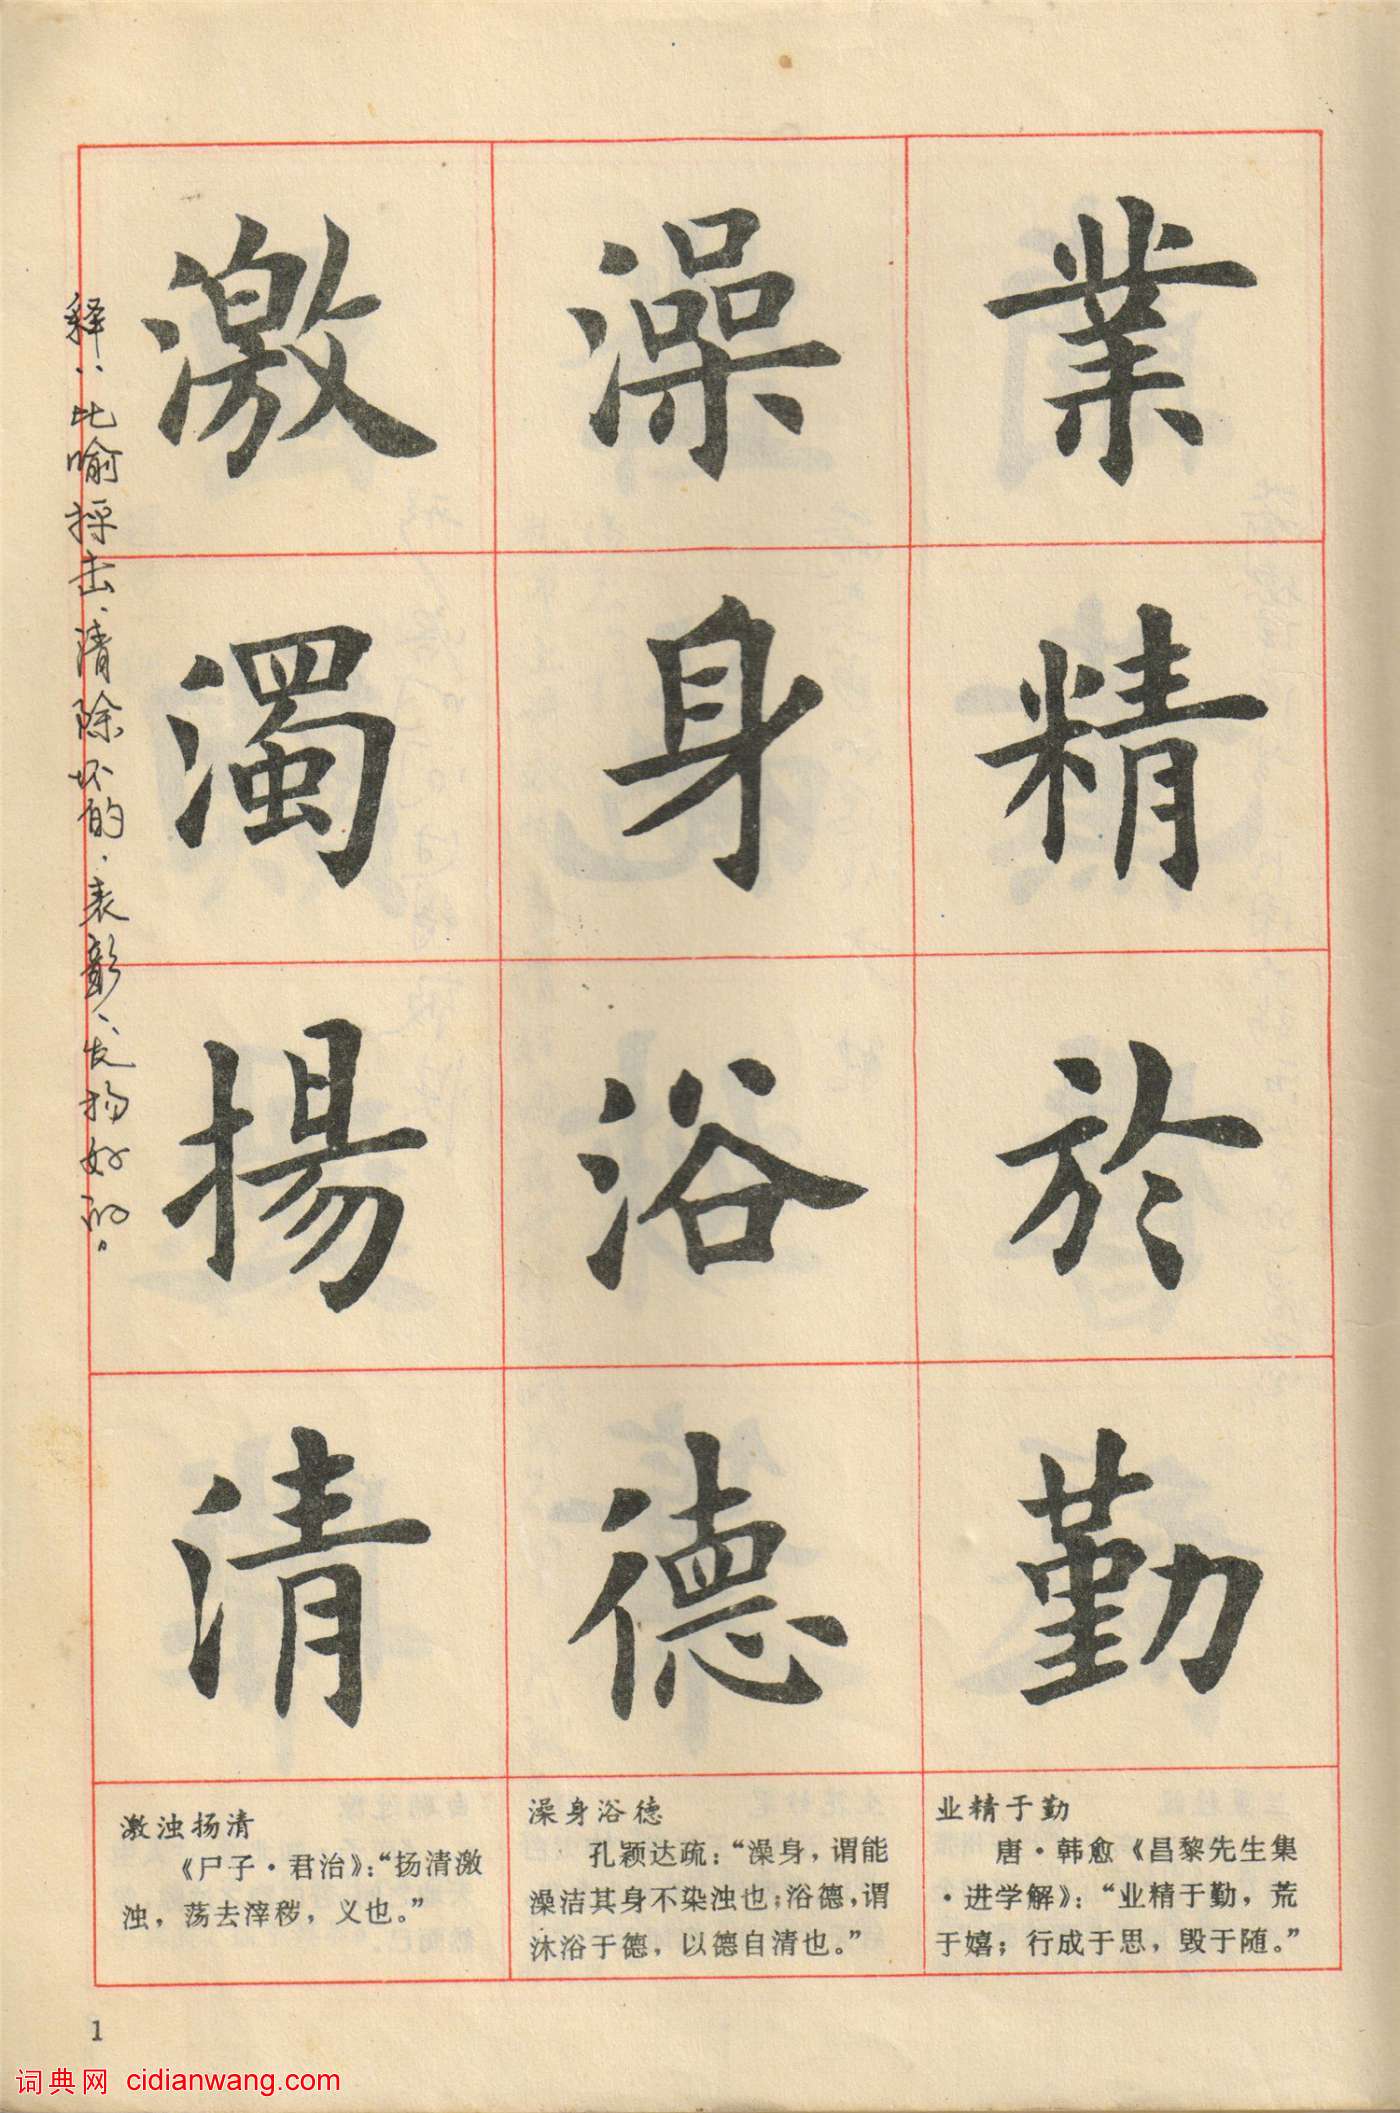 業精於勤
澡身浴德
激濁揚清
释：比喻抨击、清除坏的，表彰、发扬好的。
业精于勤
唐·韩愈《昌黎先生集
·进学解》：“业精于勤，荒
于嬉；行成于思，毁于随。”
澡身浴德
孔颖达疏：“澡身，谓能
澡洁其身不染浊也；浴德，谓
沐浴于德，以德自清也。”
激浊扬清
《尸子·君治》：“扬清激
浊，荡去滓秽，义也。”
1
词典网 cidianwang.com